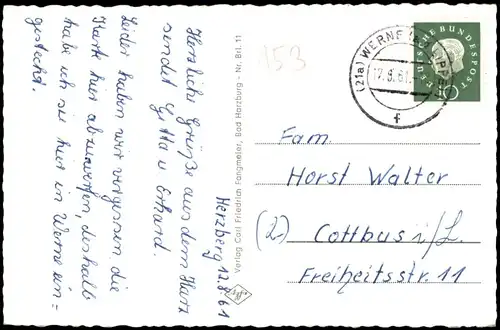 Herzberg 12.8.61
Herzliche Grüße aus dem Harz
sendet Gitta u Erhard.
Leider haben wir vergessen die
Karte hier abzuwerfen, deshalb
hab ich sie hier in Werne ein=
gesteckt.
Verlag Carl Friedrich Fangmeier, Bad Harzburg - Nr. Brl. 11
153
(21a) WERNE
f
DEUTSCHE BUNDESPOST
10
Fam.
Horst Walter
(2) Cottbus i/L.
Freiheitsstr. 11